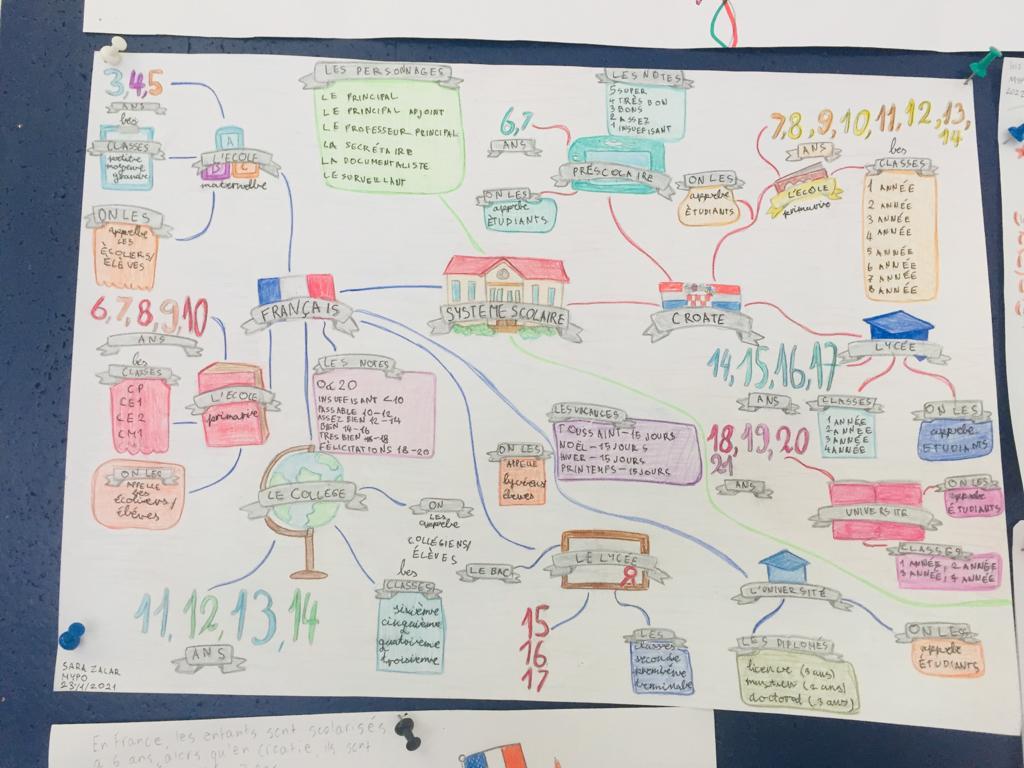 3,4,5
ANS
les
CLASSES
petite
moyenne
grande
L'ÉCOLE
A
B C
maternelle
ON LES
appelle
LES
ÉCOLIERS/
ÉLÈVES
LES PERSONNAGES
LE PRINCIPAL
LE PRINCIPAL ADJOINT
LE PROFESSEUR PRINCIPAL
LA SECRÉTAIRE
LA DOCUMENTALISTE
LE SURVEILLANT
LES NOTES
5 SUPER
4 TRÈS BON
3 BONS
2 ASSEZ
1 INSUFISANT
6,7
ANS
PRÉSCOLAIRE
ON LES
appelle
ÉTUDIANTS
ON LES
appelle
ÉTUDIANTS
7,8,9,10,11,12,13,
14
ANS
L'ÉCOLE
primaire
les
CLASSES
1 ANNÉE
2 ANNÉE
3 ANNÉE
4 ANNÉE
5 ANNÉE
6 ANNÉE
7 ANNÉE
8 ANNÉE
FRANÇAIS
SYSTÈME SCOLAIRE
CROATE
6,7,8,9,10
ANS
les
CLASSES
CP
CE1
CE2
CM1
L'ÉCOLE
primaire
ON LES
APPELLE
des
écoliers/
élèves
LES NOTES
0 à 20
INSUFFISANT <10
PASSABLE 10-12
ASSEZ BIEN 12-14
BIEN 14-16
TRES BIEN 16-18
FÉLICITATIONS 18-20
LES VACANCES
TOUSSAINT-15 JOURS
NOËL-15 JOURS
HIVER-15 JOURS
PRINTEMPS-15 JOURS
LYCÉE
14,15,16,17
ANS
CLASSES
1 ANNÉE
2 ANNÉE
3 ANNÉE
4 ANNÉE
ON LES
appelle
ÉTUDIANTS
18,19,20
21
ANS
UNIVERSITÉ
ON LES
appelle
ÉTUDIANTS
CLASSES
1 ANNÉE, 2 ANNÉE
3 ANNÉE, 4 ANNÉE
LE COLLÈGE
ON
LES
appelle
COLLÉGIENS/
ÉLÈVES
les
CLASSES
sixième
cinquième
quatrième
troisième
11,12,13,14
ANS
ON LES
APPELLE
lycéens
élèves
LE BAC
LE LYCÉE
15
16
17
LES
classes
seconde
première
terminale
L'UNIVERSITÉ
LES DIPLOMÉS
licence (3 ans)
(2 ans)
doctorat (3 ans)
ON LES
appelle
ÉTUDIANTS
SARA ZALAR
MYPO
23/1/2021
En France, les enfants sont scolarisés
à 6 ans, alors qu'en Croatie, ils sont